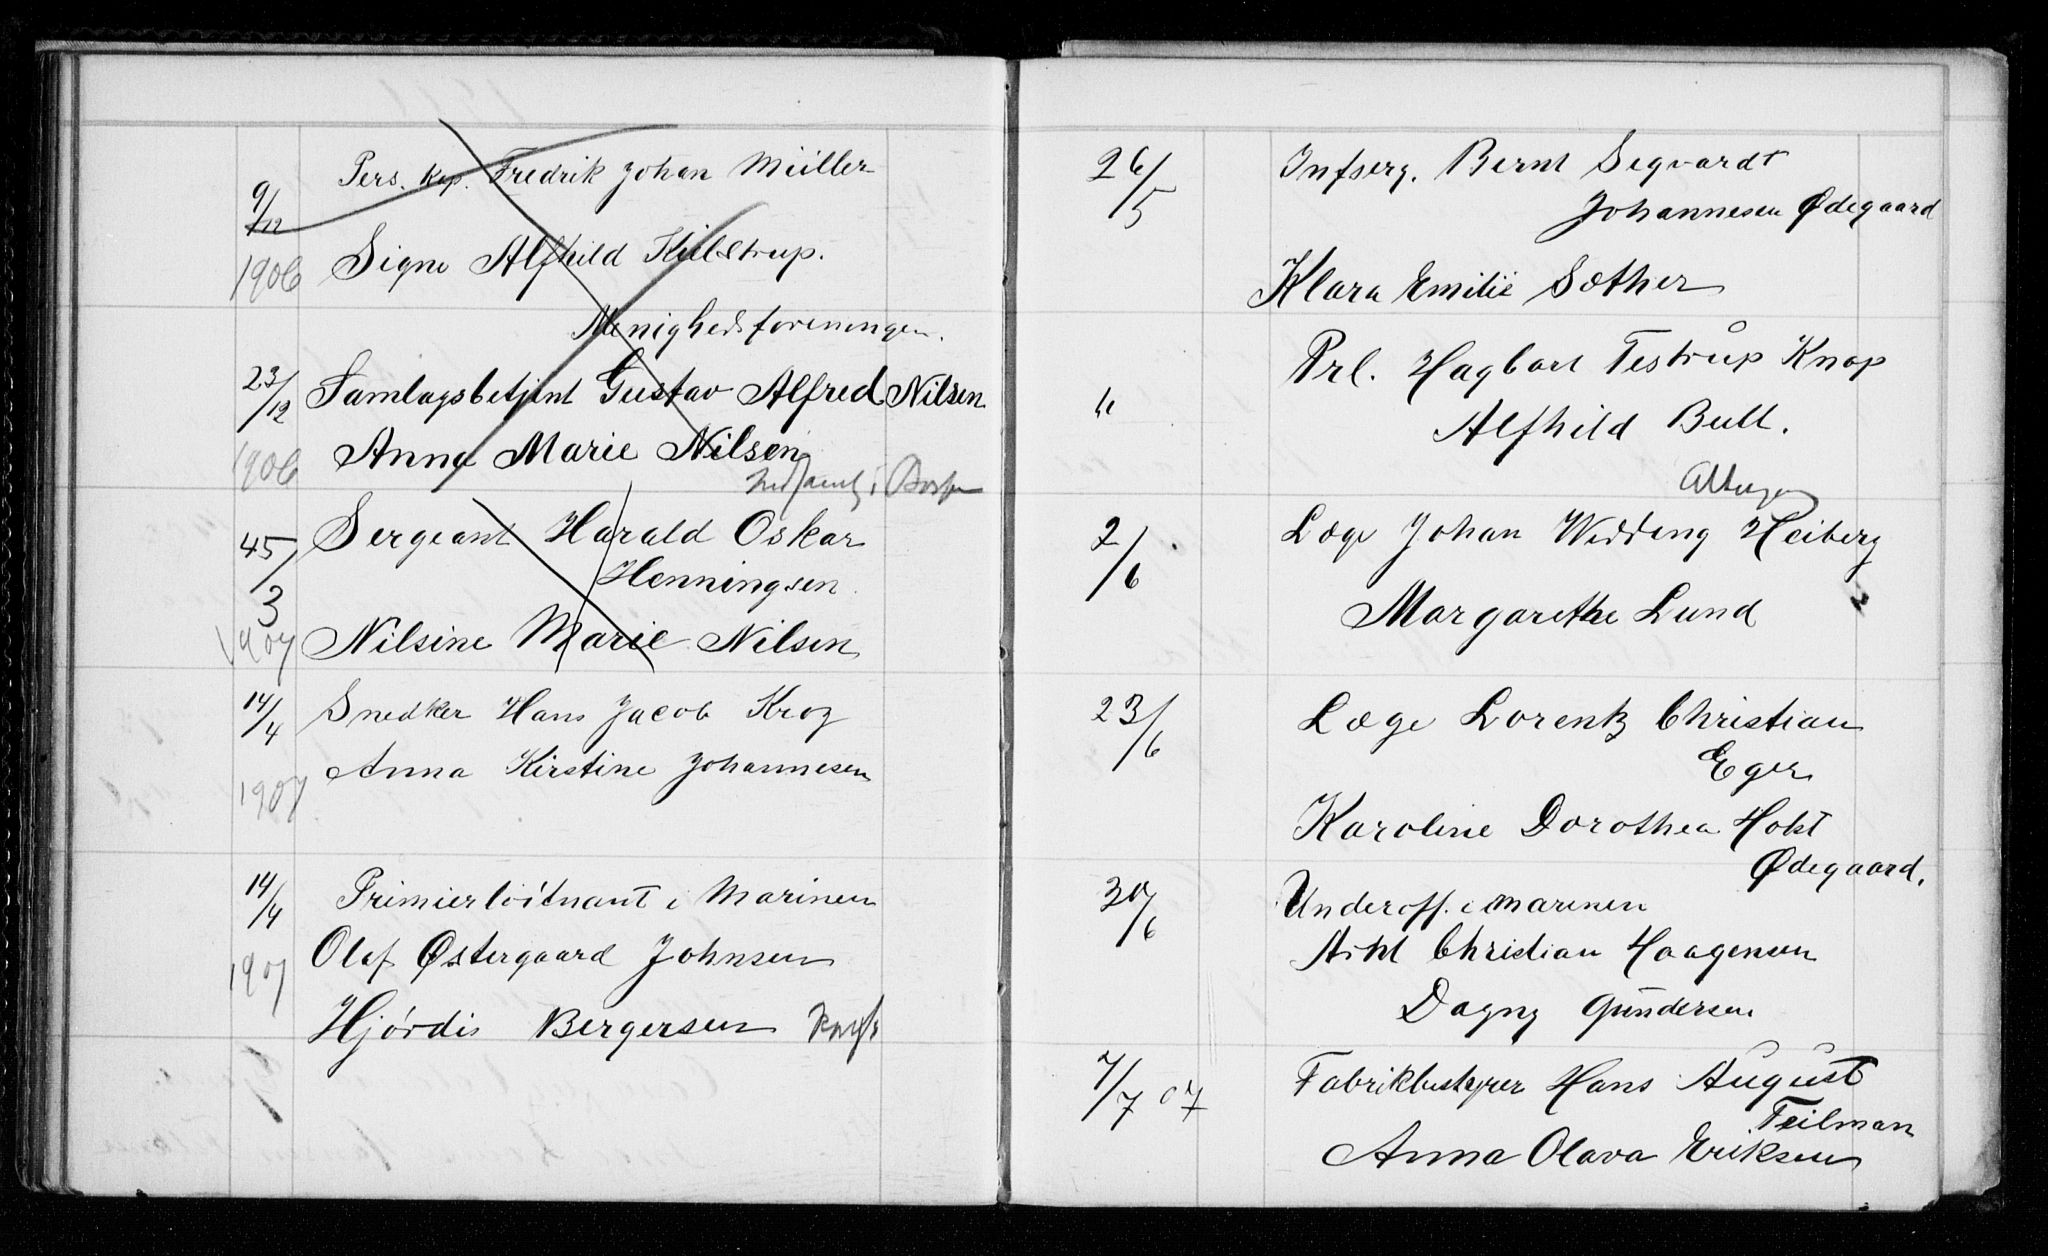 9/12 Pers. kap. Fredrik Johan Müller
1906 Signe Alfhild Kielstrup.
Menighedsforeningen.
23/12 Samlagsbetjent Gustav Alfred Nilsen
1906 Anna Marie Nilsen
Sergeant Harald Oskar
Henningsen
3
1907 Nilsine Marie Nilsen
14/4 Snedker Hans Jacob Krog
1907 Anna Kirstine Johannesen
14/4 Primierløitnant i Marinen
1907 Olaf Østergaard Johnsen
Hjørdis Bergersen
26/5 Infserg. Bernt Segvardt
Johannesen Ødegaard
Klara Emilie Sæther
" Prl. Hagbart Testrup Knap
Alfhild Bull.
2/6 Læge Johan Wedding Heiberg
Margarethe Lund
23/6 Læge Lorentz Christian
Eger
Karoline Dorothea Holst
Ødegaard.
30/6 Underoff. i marinen
Christian Haagensen
Dagny Gundersen
7/7 07 Fabrikbestyrer Hans August
Teilman
Anna Olava Eriksen